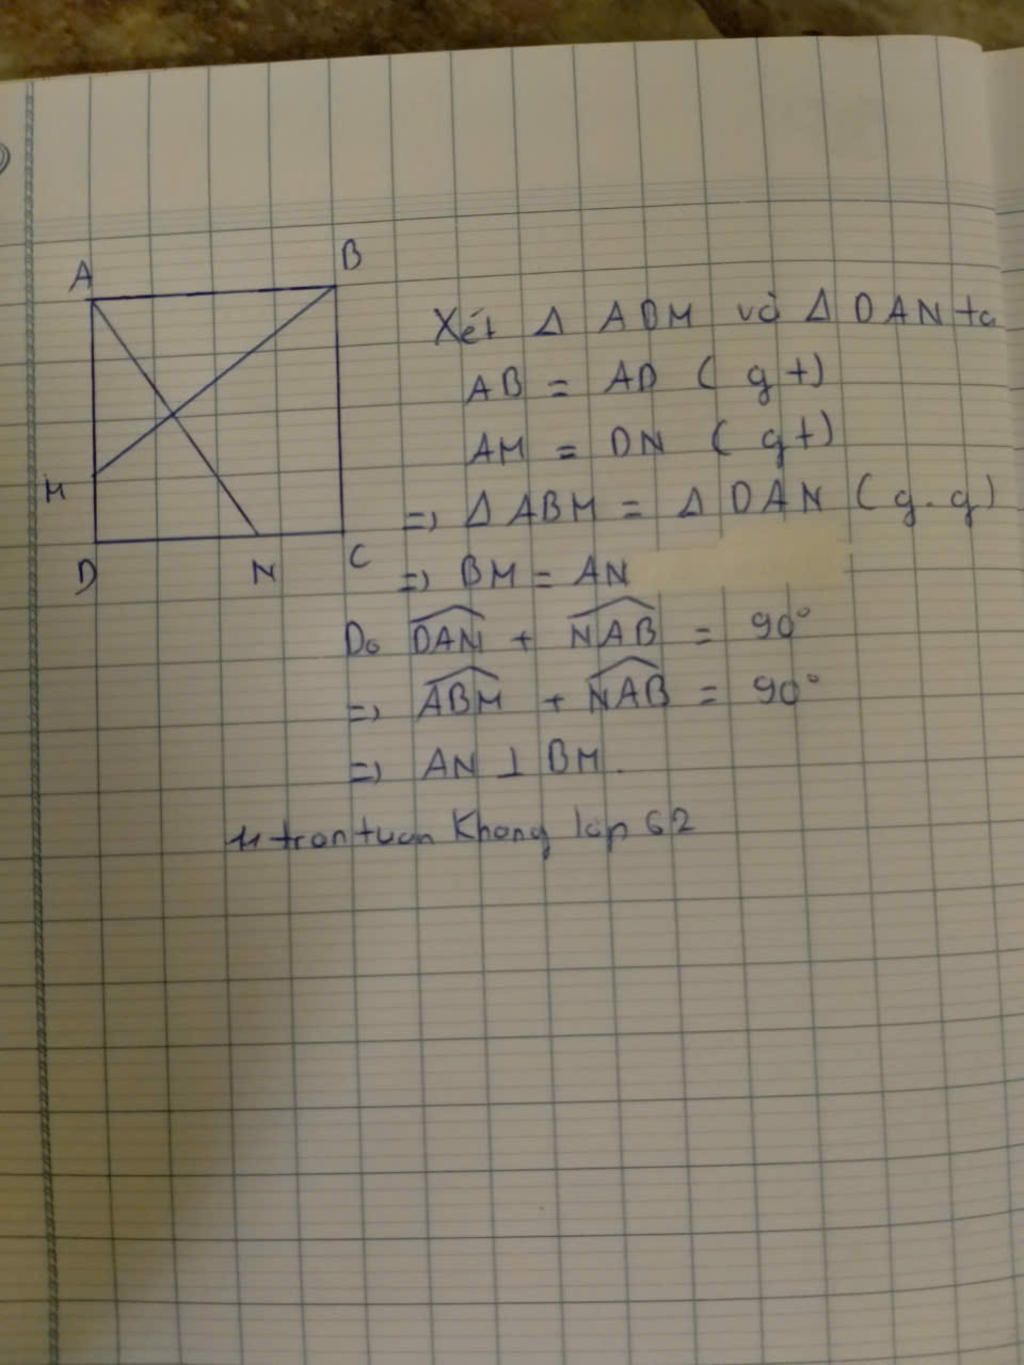 A
B
M
D
N
C
Xét Δ ABM và Δ DAN ta
AB = AD ( gt)
AM = DN ( gt)
=> Δ ABM = Δ DAN ( g.g)
=> BM = AN
Do DAN + NAB = 90°
=> ABM + NAB = 90°
=> AN ⊥ BM.
tran tuan Khang lop 62